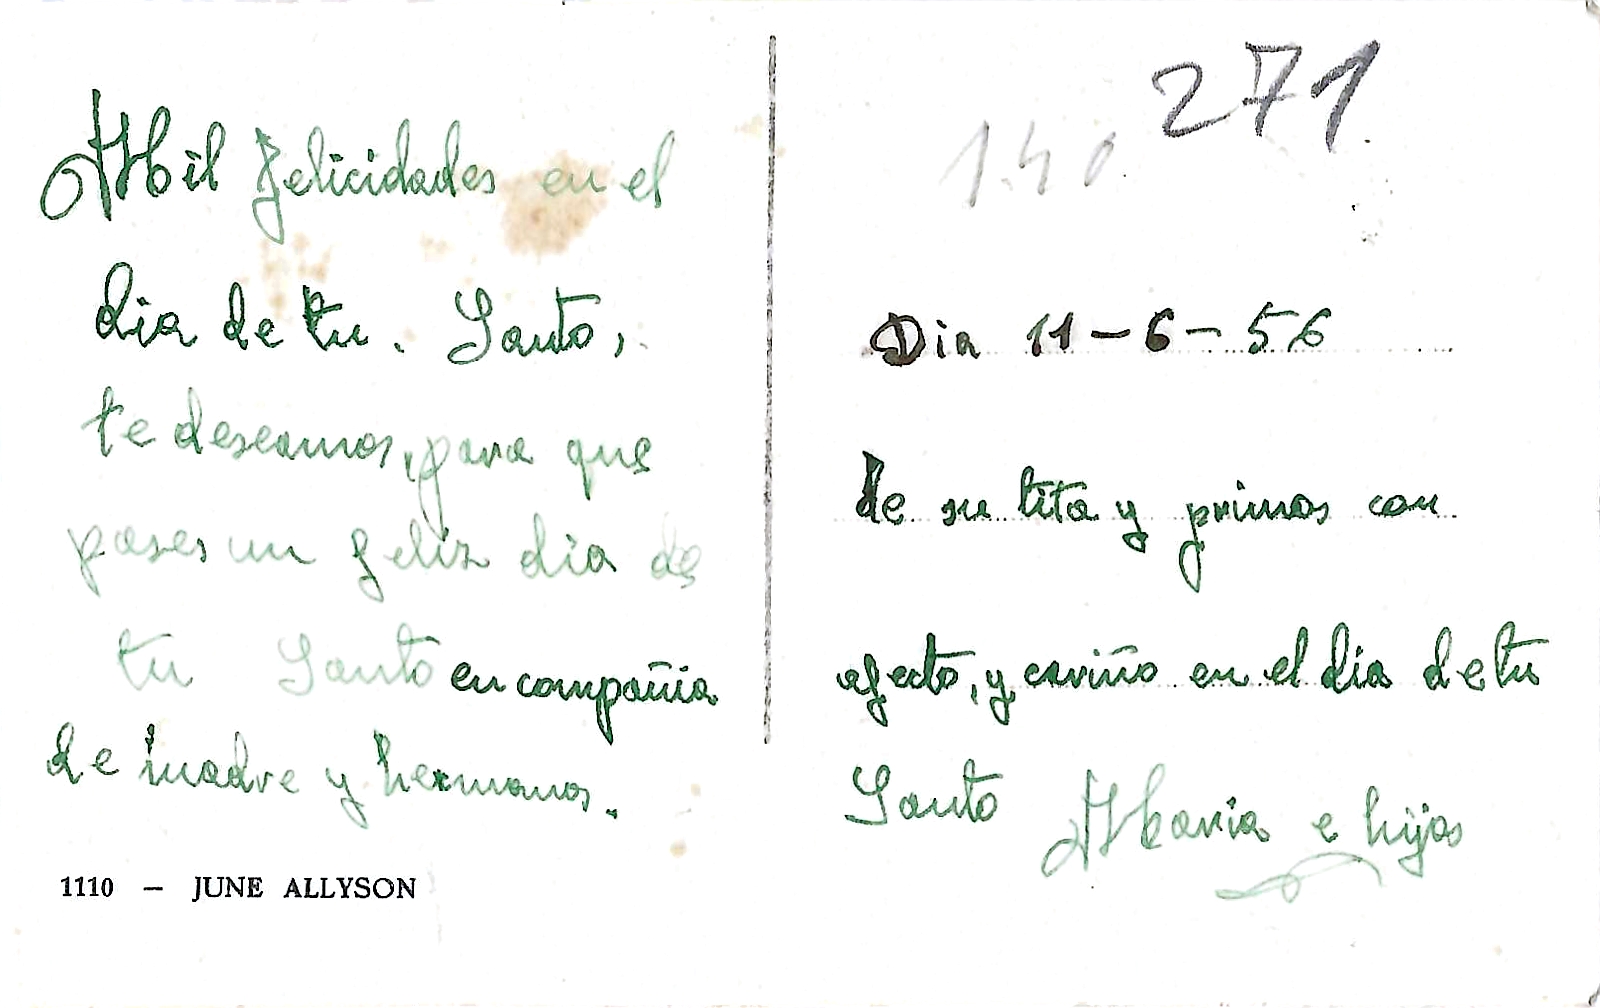 Mil felicidades en el
dia de tu. Santo,
te deseamos, para que
pases un feliz dia de
tu Santo en compañia
de madre y hermanos.
1110 — JUNE ALLYSON
271
140
Dia 11-6-56
De su tita y primos con
afecto, y cariño en el dia de tu
Santo Maria e hijos